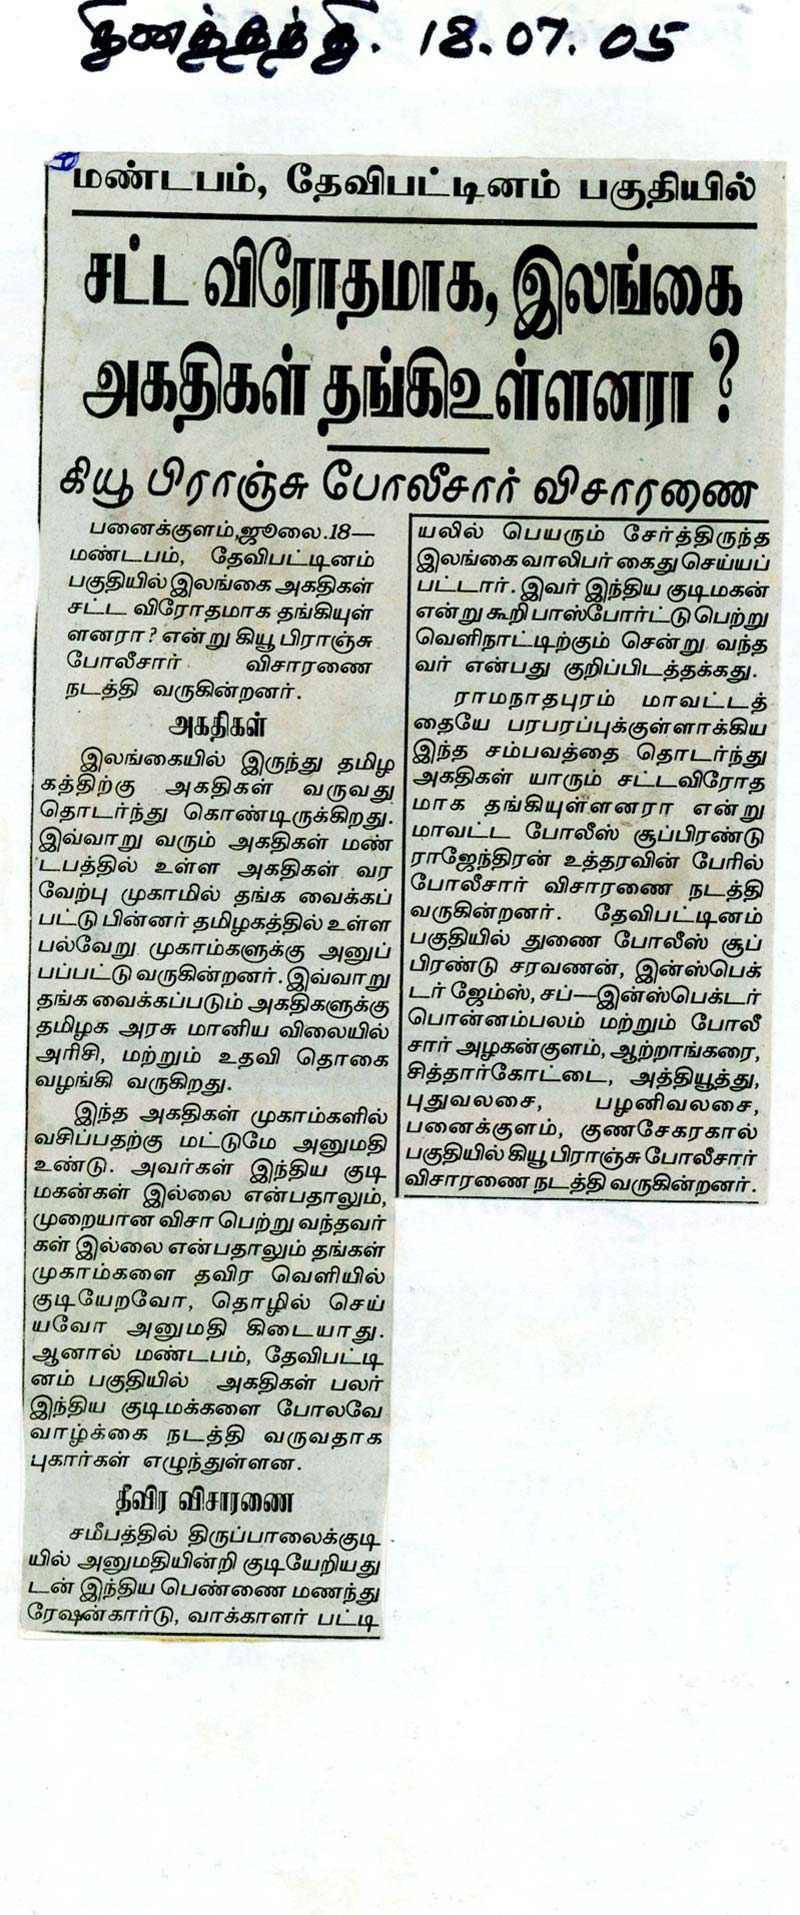 தினத்தந்தி. 18.07.05
மண்டபம், தேவிபட்டினம் பகுதியில்
சட்ட விரோதமாக, இலங்கை
அகதிகள் தங்கிஉள்ளனரா?
கியூ பிராஞ்சு போலீசார் விசாரணை
பனைக்குளம்,ஜூலை.18—
மண்டபம், தேவிபட்டினம்
பகுதியில் இலங்கை அகதிகள்
சட்ட விரோதமாக தங்கியுள்
ளனரா? என்று கியூ பிராஞ்சு
போலீசார் விசாரணை
நடத்தி வருகின்றனர்.
அகதிகள்
இலங்கையில் இருந்து தமிழ
கத்திற்கு அகதிகள் வருவது
தொடர்ந்து கொண்டிருக்கிறது.
இவ்வாறு வரும் அகதிகள் மண்
டபத்தில் உள்ள அகதிகள் வர
வேற்பு முகாமில் தங்க வைக்கப்
பட்டு பின்னர் தமிழகத்தில் உள்ள
பல்வேறு முகாம்களுக்கு அனுப்
பப்பட்டு வருகின்றனர். இவ்வாறு
தங்க வைக்கப்படும் அகதிகளுக்கு
தமிழக அரசு மானிய விலையில்
அரிசி, மற்றும் உதவி தொகை
வழங்கி வருகிறது.
இந்த அகதிகள் முகாம்களில்
வசிப்பதற்கு மட்டுமே அனுமதி
உண்டு. அவர்கள் இந்திய குடி
மகன்கள் இல்லை என்பதாலும்,
முறையான விசா பெற்று வந்தவர்
கள் இல்லை என்பதாலும் தங்கள்
முகாம்களை தவிர வெளியில்
குடியேறவோ, தொழில் செய்
யவோ அனுமதி கிடையாது.
ஆனால் மண்டபம், தேவிபட்டி
னம் பகுதியில் அகதிகள் பலர்
இந்திய குடிமக்களை போலவே
வாழ்க்கை நடத்தி வருவதாக
புகார்கள் எழுந்துள்ளன.
தீவிர விசாரணை
சமீபத்தில் திருப்பாலைக்குடி
யில் அனுமதியின்றி குடியேறியது
டன் இந்திய பெண்ணை மணந்து
ரேஷன்கார்டு, வாக்காளர் பட்டி
யலில் பெயரும் சேர்த்திருந்த
இலங்கை வாலிபர் கைது செய்யப்
பட்டார். இவர் இந்திய குடிமகன்
என்று கூறி பாஸ்போர்ட்டு பெற்று
வெளிநாட்டிற்கும் சென்று வந்த
வர் என்பது குறிப்பிடத்தக்கது.
ராமநாதபுரம் மாவட்டத்
தையே பரபரப்புக்குள்ளாக்கிய
இந்த சம்பவத்தை தொடர்ந்து
அகதிகள் யாரும் சட்டவிரோத
மாக தங்கியுள்ளனரா என்று
மாவட்ட போலீஸ் சூப்பிரண்டு
ராஜேந்திரன் உத்தரவின் பேரில்
போலீசார் விசாரணை நடத்தி
வருகின்றனர். தேவிபட்டினம்
பகுதியில் துணை போலீஸ் சூப்
பிரண்டு சரவணன், இன்ஸ்பெக்
டர் ஜேம்ஸ், சப்—இன்ஸ்பெக்டர்
பொன்னம்பலம் மற்றும் போலீ
சார் அழகன்குளம், ஆற்றாங்கரை,
சித்தார்கோட்டை, அத்தியூத்து,
புதுவலசை, பழனிவலசை,
பனைக்குளம், குணசேகரகால்
பகுதியில் கியூ பிராஞ்சு போலீசார்
விசாரணை நடத்தி வருகின்றனர்.